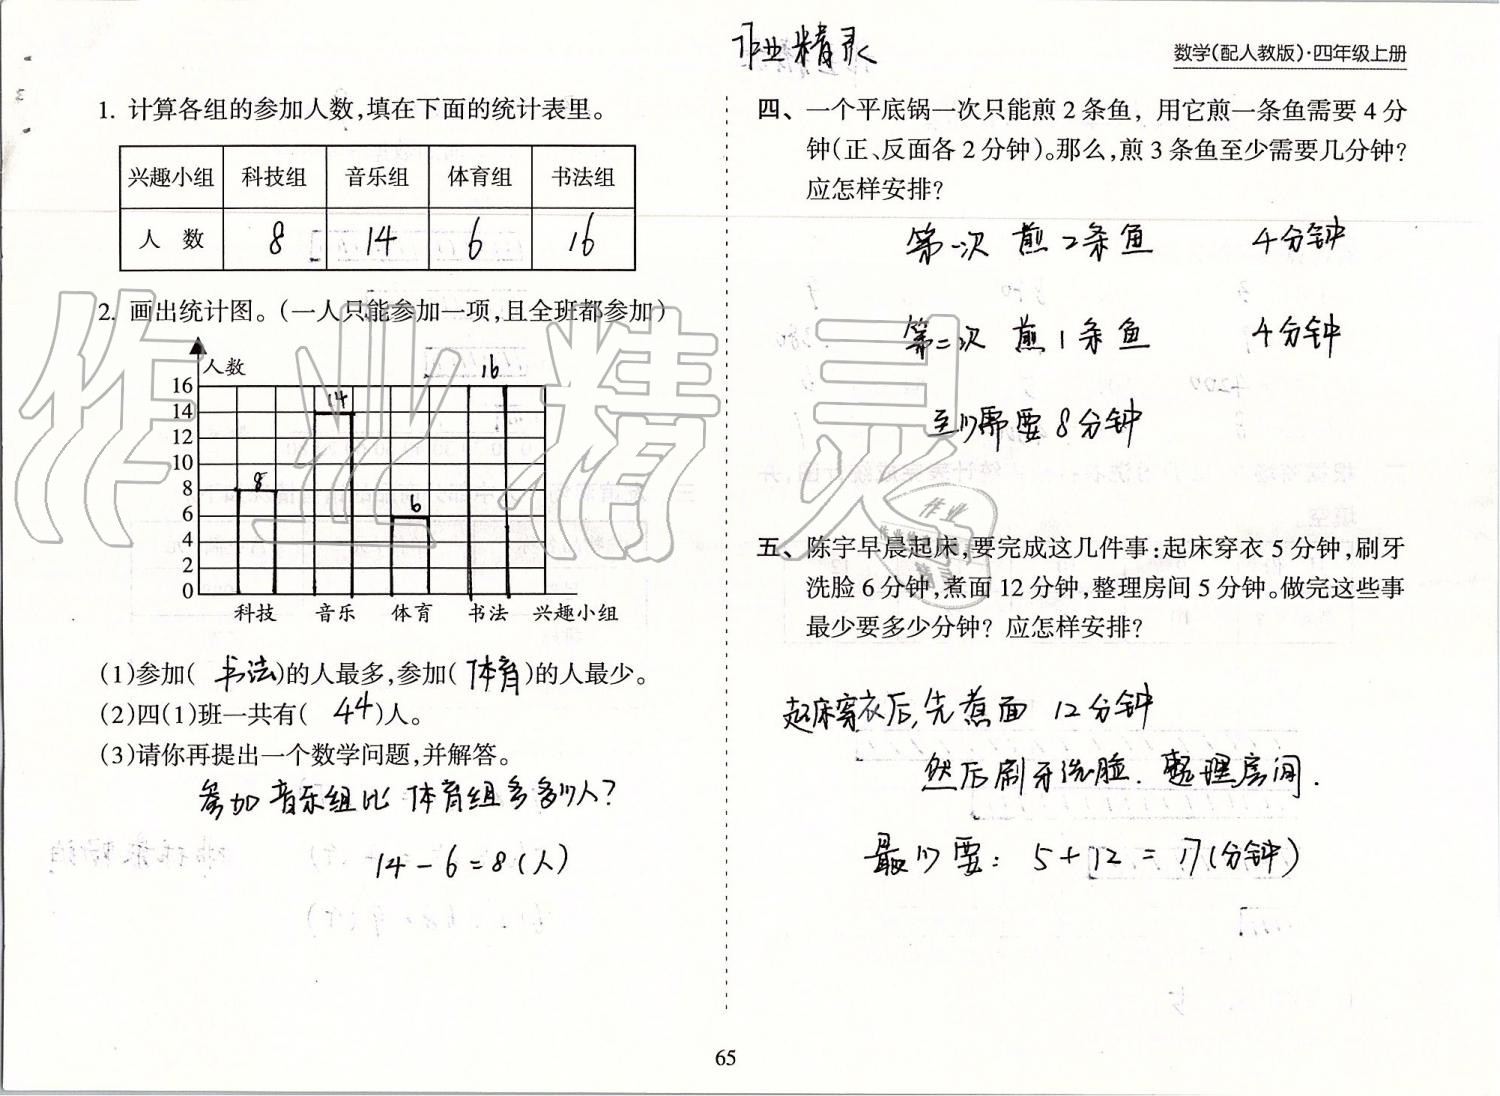 作业精灵
数学(配人教版)·四年级上册
1. 计算各组的参加人数,填在下面的统计表里。
兴趣小组 科技组 音乐组 体育组 书法组
人 数 8 14 6 16
2. 画出统计图。(一人只能参加一项,且全班都参加)
人数
16
14
12
10
8
6
4
2
0
8 14 6 16
科技 音乐 体育 书法 兴趣小组
(1)参加( 书法 )的人最多,参加( 体育 )的人最少。
(2)四(1)班一共有( 44 )人。
(3)请你再提出一个数学问题,并解答。
参加音乐组比体育组多多少人?
14-6=8(人)
四、一个平底锅一次只能煎2条鱼,用它煎一条鱼需要4分
钟(正、反面各2分钟)。那么,煎3条鱼至少需要几分钟?
应怎样安排?
第一次 煎2条鱼 4分钟
第二次 煎1条鱼 4分钟
至少需要8分钟
五、陈宇早晨起床,要完成这几件事:起床穿衣5分钟,刷牙
洗脸6分钟,煮面12分钟,整理房间5分钟。做完这些事
最少要多少分钟? 应怎样安排?
起床穿衣后,先煮面 12分钟
然后刷牙洗脸.整理房间.
最少要: 5+12=17(分钟)
65
作业精灵